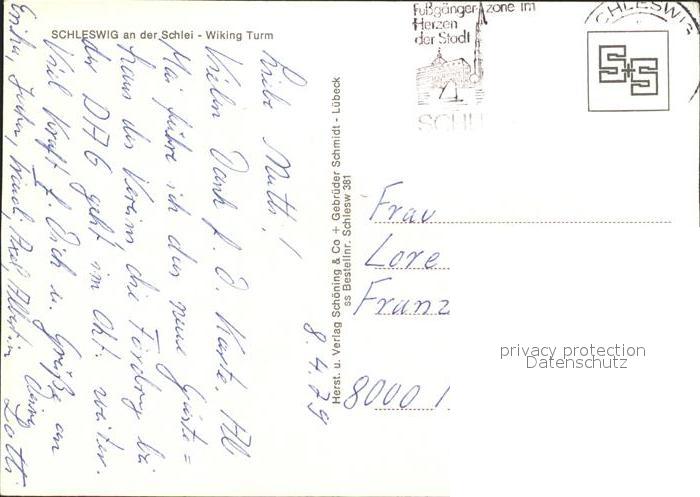 SCHLESWIG an der Schlei - Wiking Turm
Liebe Mutti!
Vielen Dank f. D. Karte. Ab
Mai führe ich das neue Gäste=
haus des Vereins die Förderg bei
der DFG geht im Okt. weiter.
Viel Kraft f. Dich u. Grüße an
Lotti
8.4.79
Herst. u. Verlag Schöning & Co + Gebrüder Schmidt - Lübeck
ss Bestellnr. Schlesw 381
Fußgängerzone im
Herzen
der Stadt
SCHL
SCHLESWIG
S+S
Frau
Lore
Franz
8000 1
privacy protection
Datenschutz